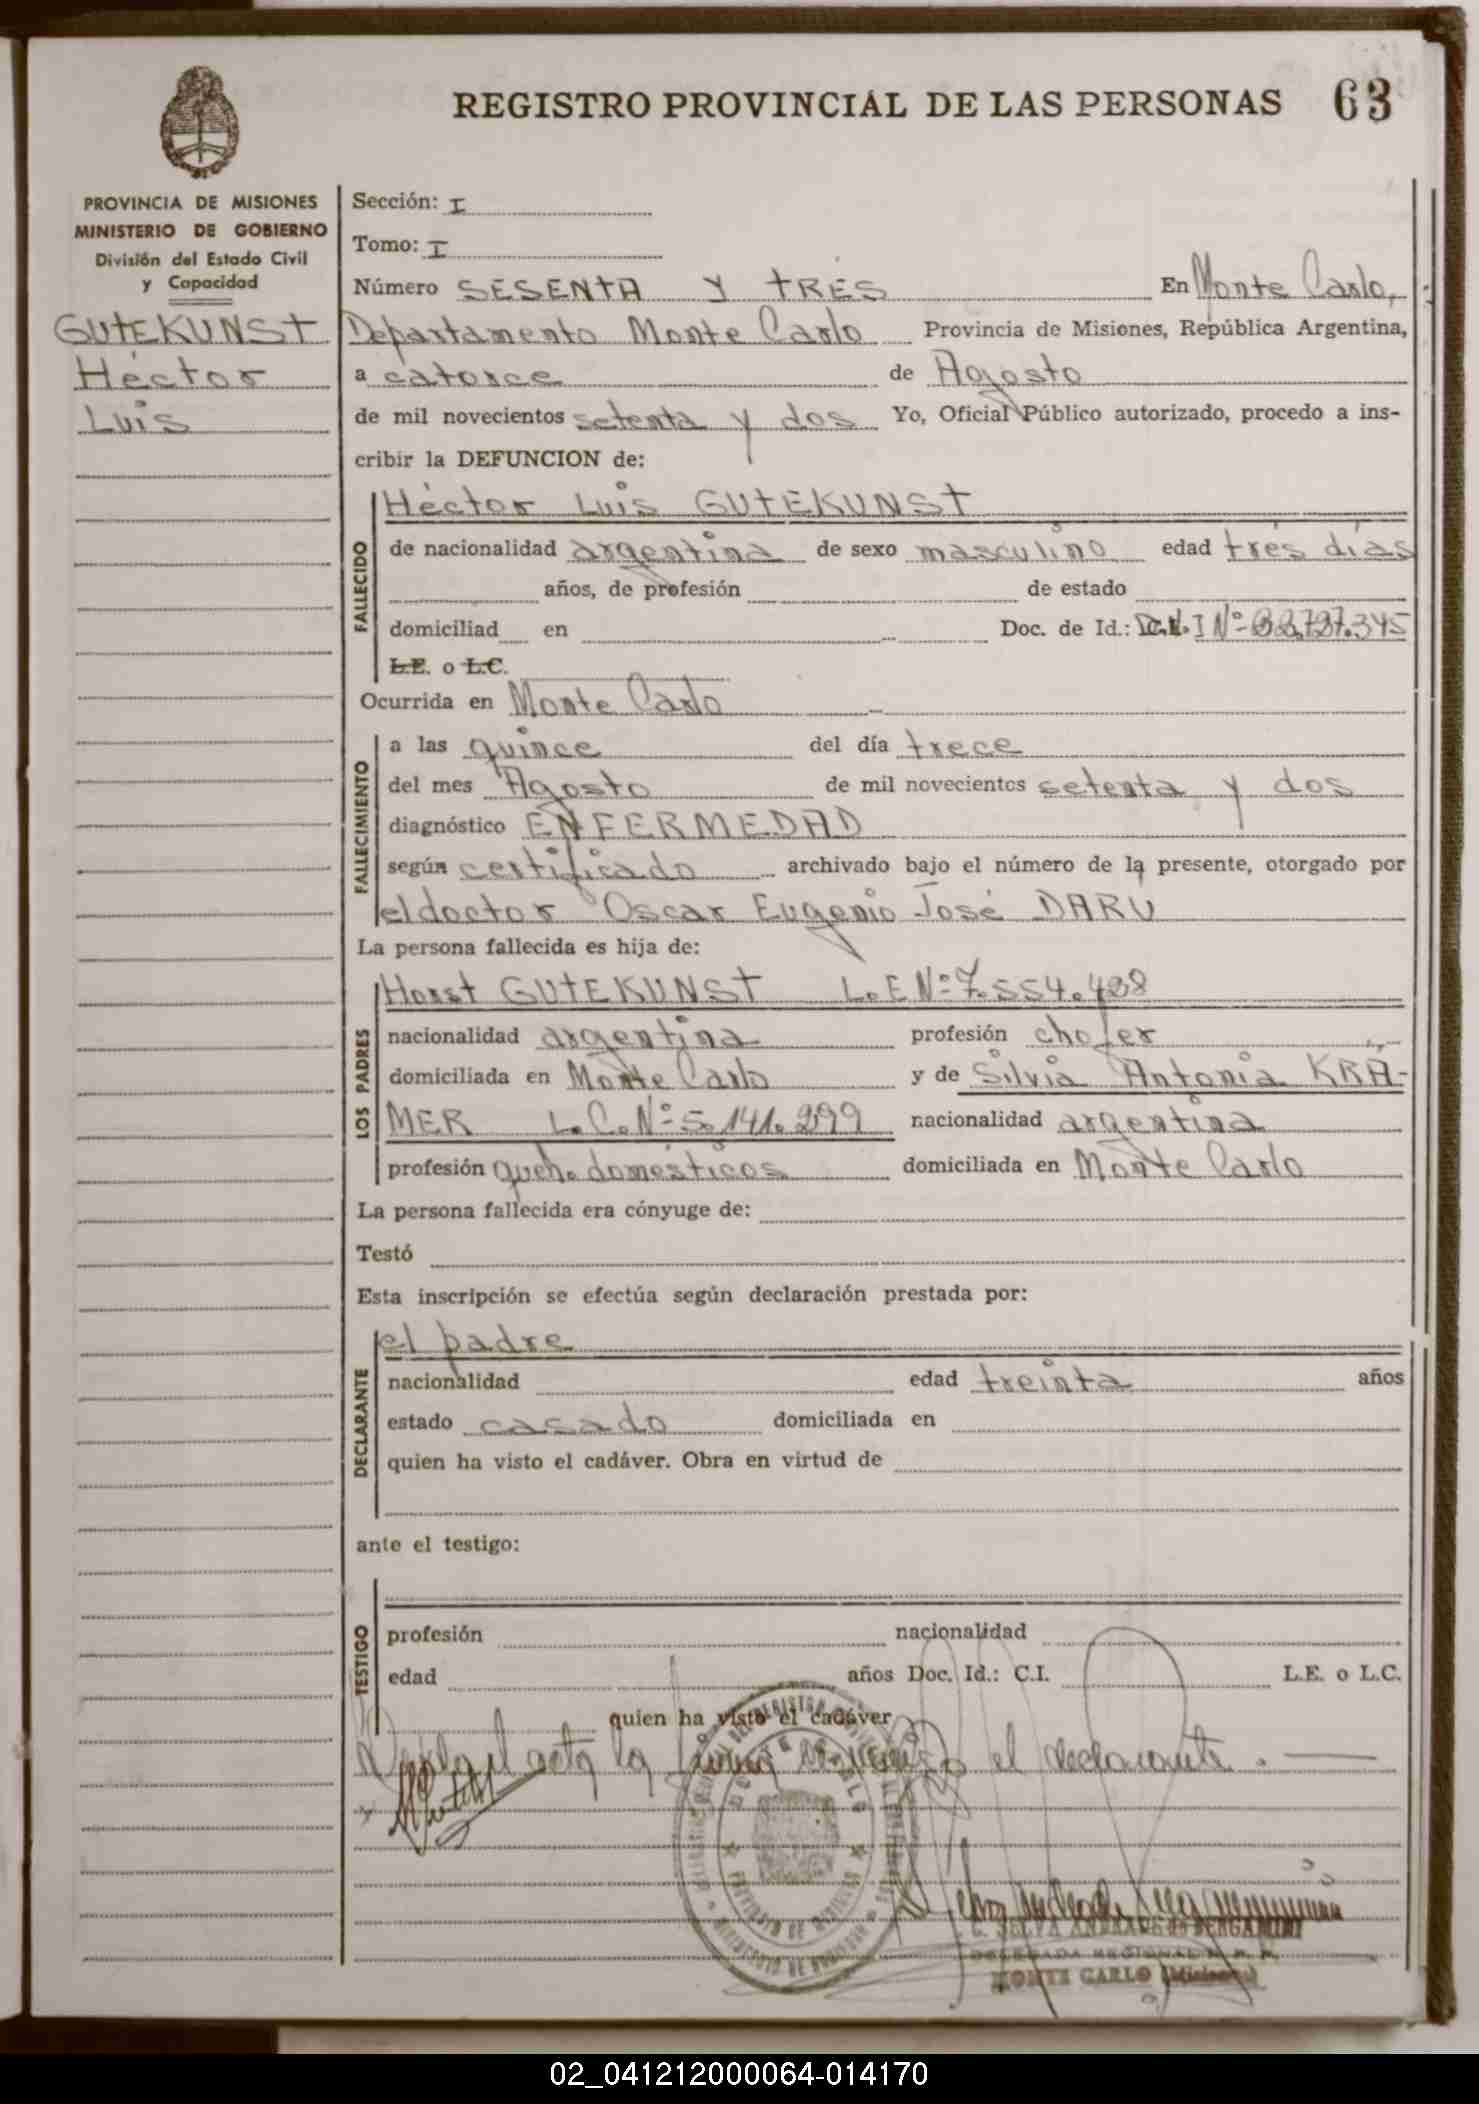 REGISTRO PROVINCIAL DE LAS PERSONAS 63
PROVINCIA DE MISIONES
MINISTERIO DE GOBIERNO
División del Estado Civil
y Capacidad
GUTEKUNST
Héctor
Luis
Sección: I
Tomo: I
Número SESENTA Y TRES En Monte Carlo,
Departamento Monte Carlo Provincia de Misiones, República Argentina,
a catorce de Agosto
de mil novecientos setenta y dos Yo, Oficial Público autorizado, procedo a ins-
cribir la DEFUNCION de:
FALLECIDO
Héctor Luis GUTEKUNST
de nacionalidad argentina de sexo masculino edad tres días
años, de profesión de estado
domiciliad en Doc. de Id.: Nº
L.E. o L.C.
Ocurrida en Monte Carlo
FALLECIMIENTO
a las quince del día trece
del mes Agosto de mil novecientos setenta y dos
diagnóstico ENFERMEDAD
según certificado archivado bajo el número de la presente, otorgado por
el doctor Oscar Eugenio José DARU
La persona fallecida es hija de:
LOS PADRES
Horst GUTEKUNST L.E Nº 7.554.
nacionalidad argentina profesión chofer
domiciliada en Monte Carlo y de Silvia Antonia KRA-
MER L.C. Nº 5.141.299 nacionalidad argentina
profesión queh. domésticos domiciliada en Monte Carlo
La persona fallecida era cónyuge de:
Testó
Esta inscripción se efectúa según declaración prestada por:
DECLARANTE
el padre
nacionalidad edad treinta años
estado casado domiciliada en
quien ha visto el cadáver. Obra en virtud de
ante el testigo:
TESTIGO
profesión nacionalidad
edad años Doc. Id.: C.I. L.E. o L.C.
quien ha visto el cadáver
acta la el declarante.
MONTE CARLO (Misiones)
02_041212000064-014170